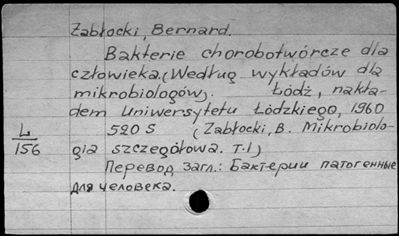 Zabłocki, Bernard.
Bakterie chorobotwórcze dla
człowieka. (Według wykładów dla
mikrobiologów). Łódź, nakła-
dem Uniwersytetu Łódzkiego, 1960
520 S (Zabłocki, B. Mikrobiolo-
gia szczegółowa. T.I)
Перевод загл.: Бактерии патогенные
для человека.
L
156